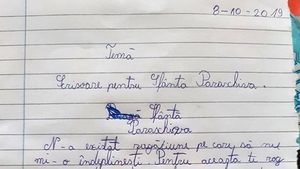 8-10-2019
Temă
Scrisoare pentru Sfânta Parascheva.
Sfântă
Parascheva
N-a existat rugăciune pe care să nu
mi-o îndeplinești. Pentru aceasta te rog